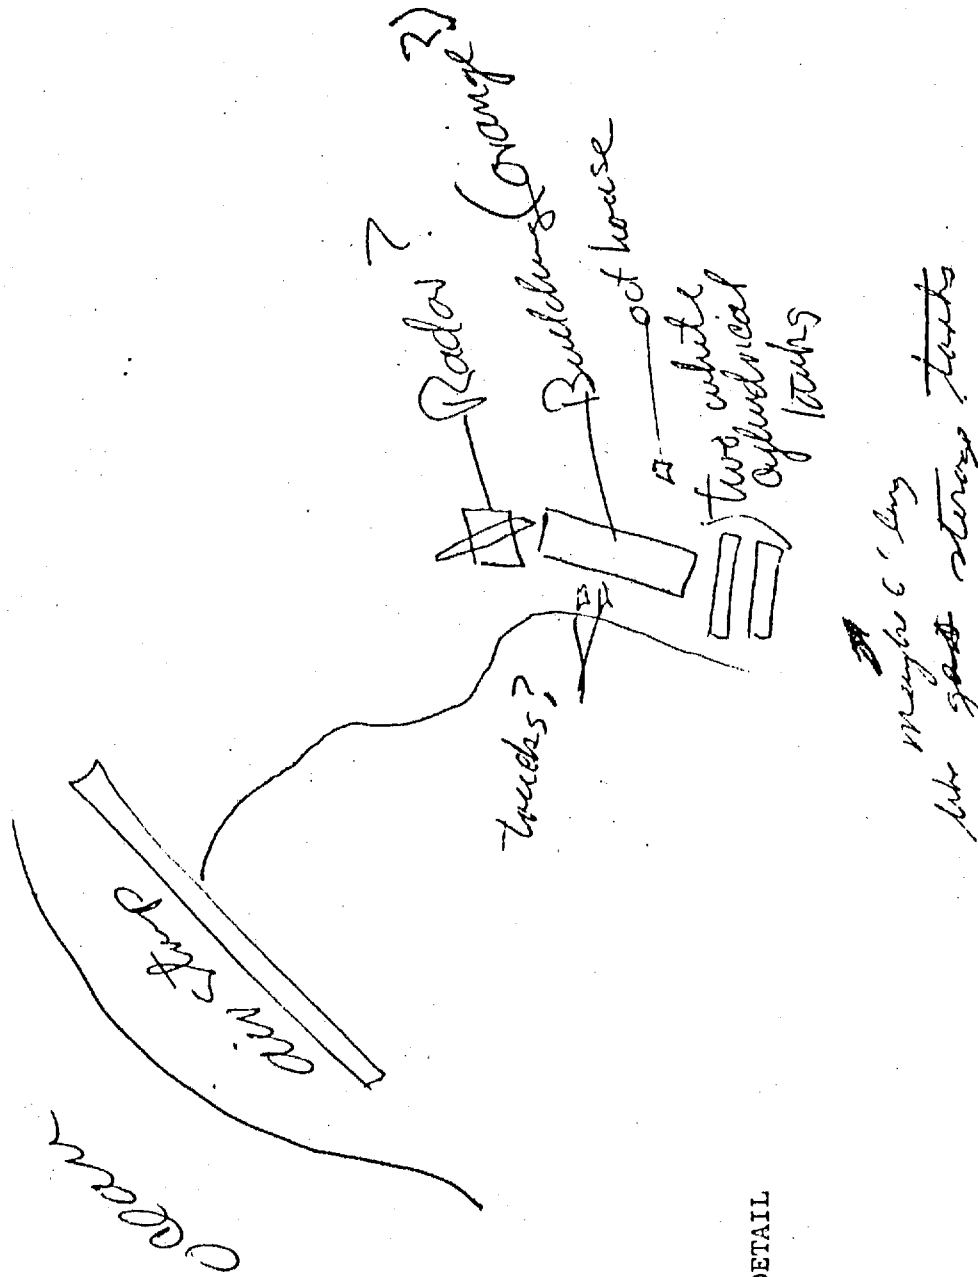 Ocean
air strip
trucks?
Radar ?
Building (orange?)
out house
two white
cylindrical
tanks
maybe 6' long
like gas storage tanks
DETAIL